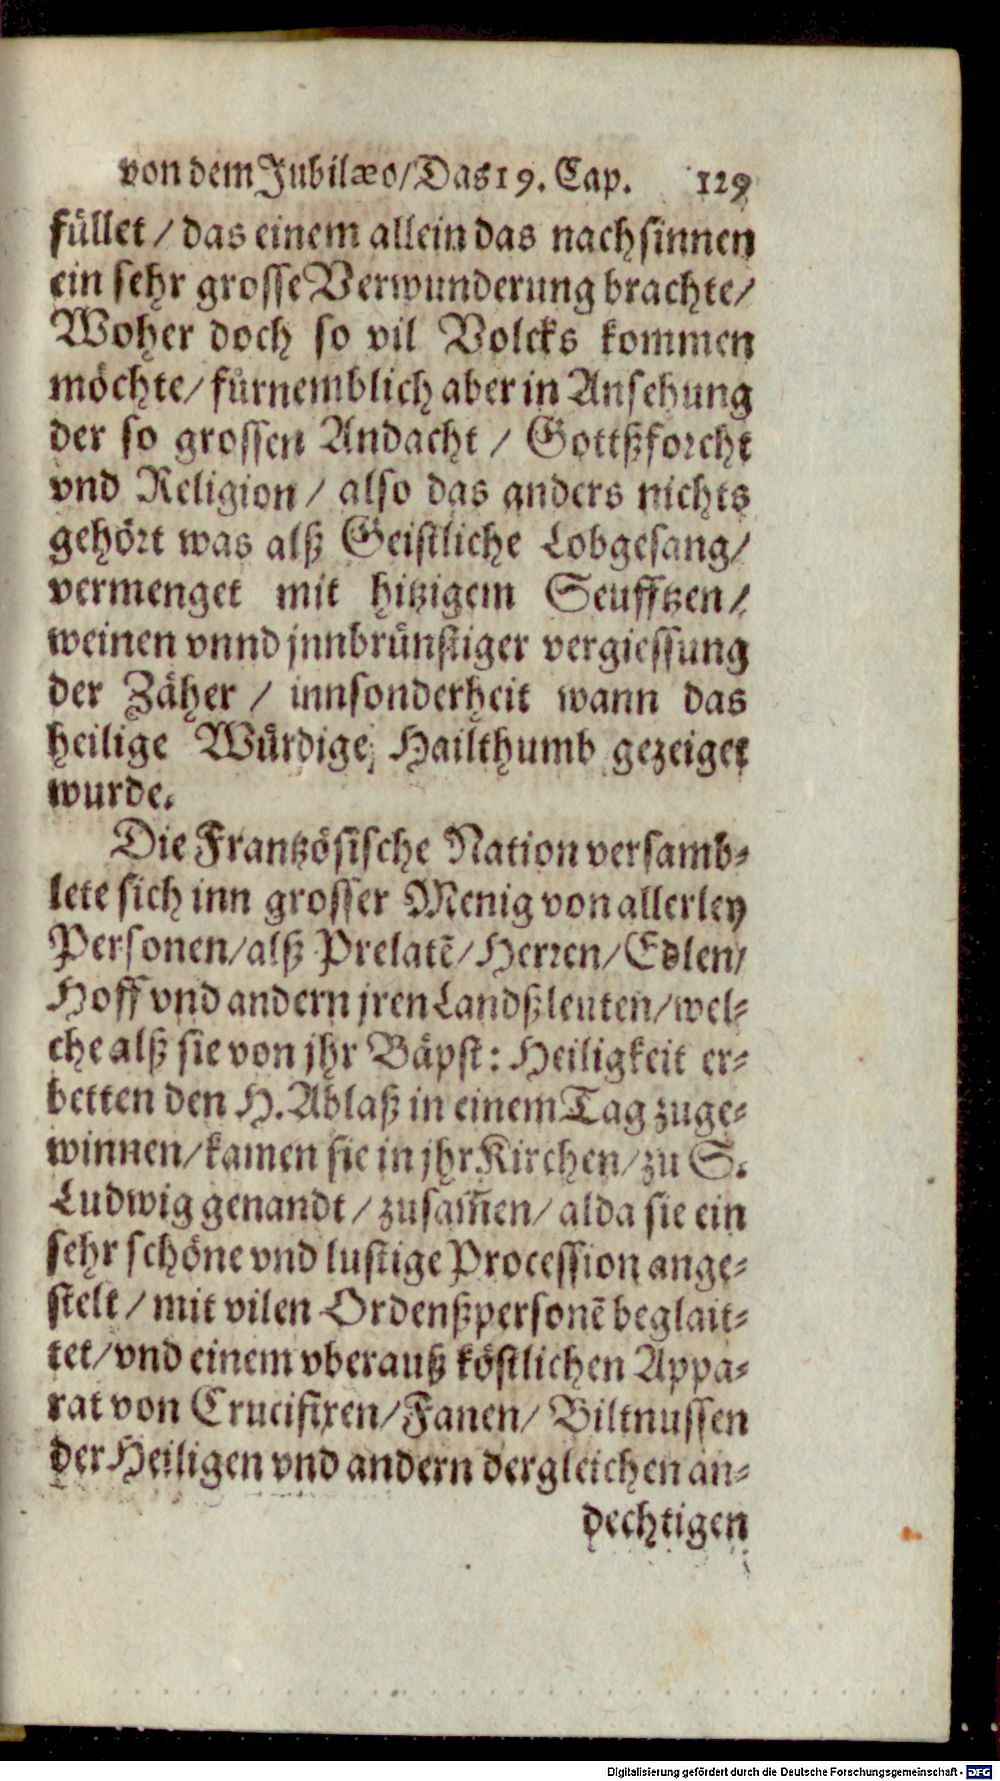 von dem Jubilæo/Das 19. Cap. 129
füllet / das einem allein das nachsinnen
ein sehr grosse Verwunderung brachte/
Woher doch so vil Volcks kommen
möchte/ fürnemblich aber in Ansehung
der so grossen Andacht / Gottßforcht
vnd Religion / also das anders nichts
gehört was alß Geistliche Lobgesang/
vermenget mit hitzigem Seufftzen/
weinen vnnd jnnbrünstiger vergiessung
der Zäher / innsonderheit wann das
heilige Würdige Hailthumb gezeiget
wurde.
Die Frantzösische Nation versamb-
lete sich inn grosser Menig von allerley
Personen/alß Prelatē/Herren/Edlen/
Hoff vnd andern jren Landßleuten/wel-
che alß sie von jhr Bäpst: Heiligkeit er-
betten den H. Ablaß in einem Tag zuge-
winnen/kamen sie in jhr Kirchen/zu S.
Ludwig genandt / zusam̄en/ alda sie ein
sehr schöne vnd lustige Procession ange-
stelt / mit vilen Ordenßpersonē beglait-
tet/vnd einem vberauß köstlichen Appa-
rat von Crucifixen/Fanen/ Biltnussen
der Heiligen vnd andern dergleichen an-
dechtigen
Digitalisierung gefördert durch die Deutsche Forschungsgemeinschaft - DFG